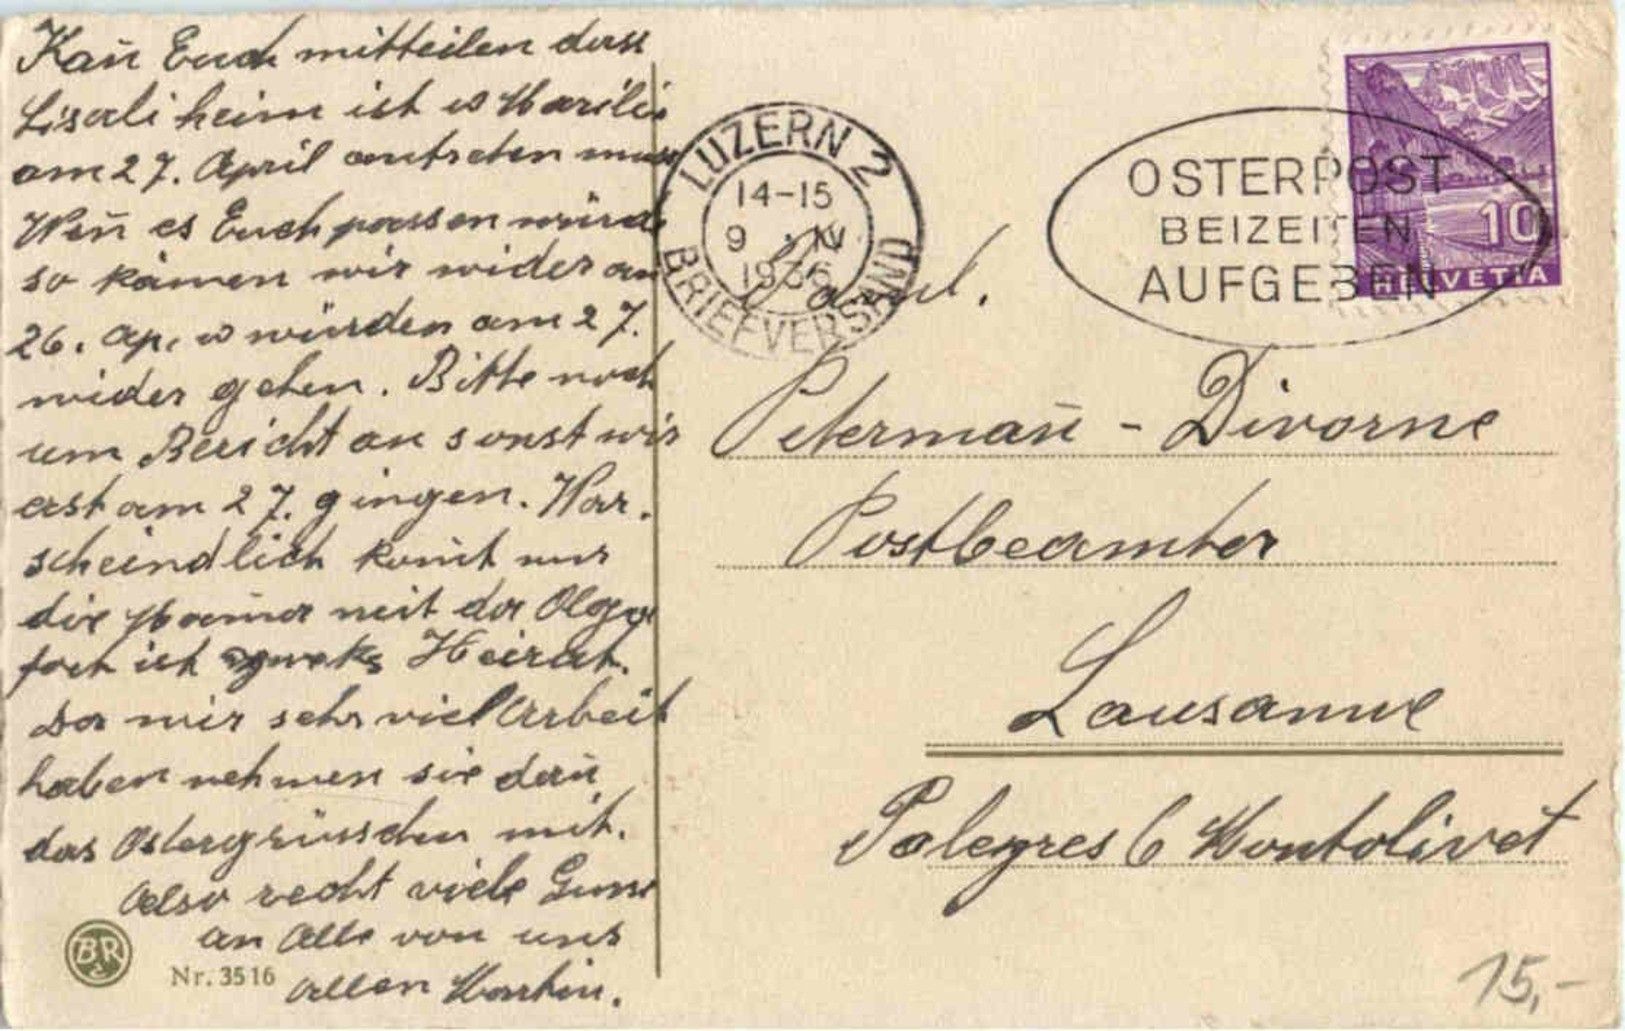 Kañ Euch mitteilen dass
Lisali heim ist u Marili
am 27. April antreten muss
Weñ es Euch passen würde
so kämen wir wider an
26. Ap. u würden am 27.
wider gehen. Bitte noch
um Bericht an sonst wir
erst am 27. gingen. War.
scheindlich komt nur
die Mama mit der Olga
fort ist zweks Heirat.
Da wir sehr viel Arbeit
haben nehmen sie dañ
das Ostergrüsschen mit.
Also recht viele Grüsse
an Alle von uns
allen Martin.
BR
Nr. 3516
LUZERN 2
14-15
9. IV.
1936
BRIEFVERSAND
OSTERPOST
BEIZEITEN
AUFGEBEN
10
HELVETIA
Fam.
Petermañ - Divorne
Postbeamter
Lausanne
6 Montolivet
15,-